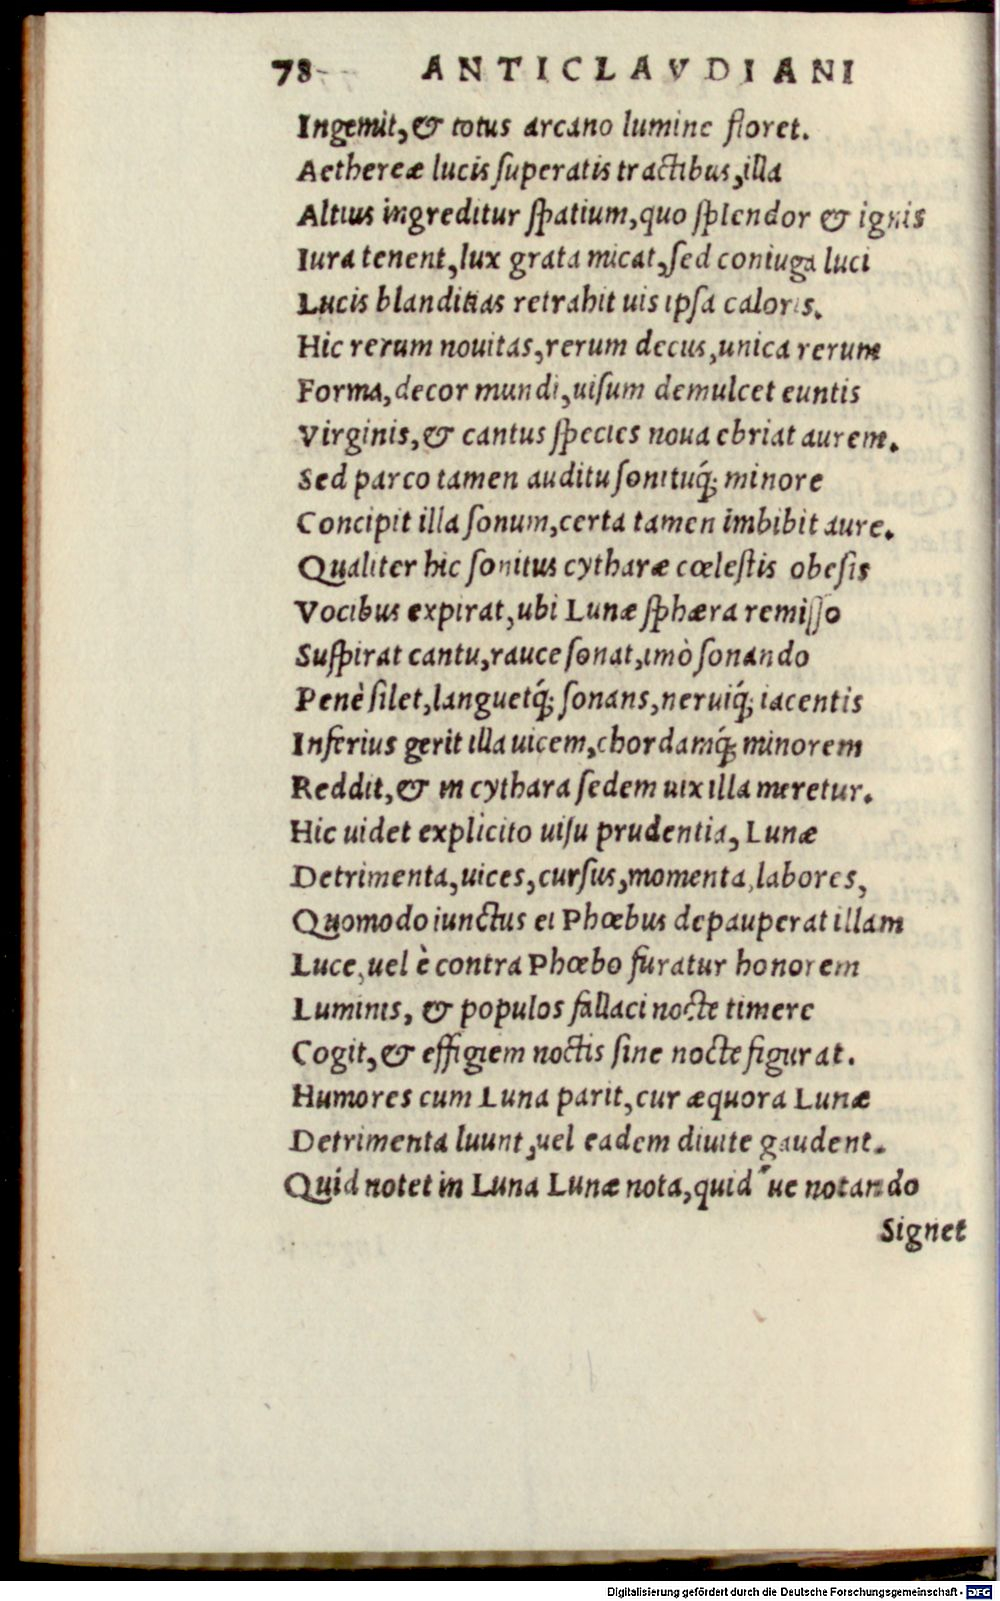 78 ANTICLAVDIANI
Ingemit, & totus arcano lumine floret.
Aethereæ lucis ſuperatis tractibus, illa
Altius ingreditur ſpatium, quo ſplendor & ignis
Iura tenent, lux grata micat, ſed coniuga luci
Lucis blanditias retrahit uis ipſa caloris.
Hic rerum nouitas, rerum decus, unica rerum
Forma, decor mundi, uiſum demulcet euntis
Virginis, & cantus ſpecies noua ebriat aurem.
Sed parco tamen auditu ſonituq́; minore
Concipit illa ſonum, certa tamen imbibit aure.
Qualiter hic ſonitus cytharæ cœleſtis obeſis
Vocibus expirat, ubi Lunæ ſphæra remiſſo
Suſpirat cantu, rauce ſonat, imò ſonando
Penè ſilet, languetq́; ſonans, neruiq́; iacentis
Inferius gerit illa uicem, chordamq́; minorem
Reddit, & in cythara ſedem uix illa meretur.
Hic uidet explicito uiſu prudentia, Lunæ
Detrimenta, uices, curſus, momenta, labores,
Quomodo iunctus ei Phœbus depauperat illam
Luce, uel è contra Phœbo furatur honorem
Luminis, & populos fallaci nocte timere
Cogit, & effigiem noctis ſine nocte figurat.
Humores cum Luna parit, cur æquora Lunæ
Detrimenta luunt, uel eadem diuite gaudent.
Quid notet in Luna Lunæ nota, quid ue notando
Signet
Digitalisierung gefördert durch die Deutsche Forschungsgemeinschaft - DFG